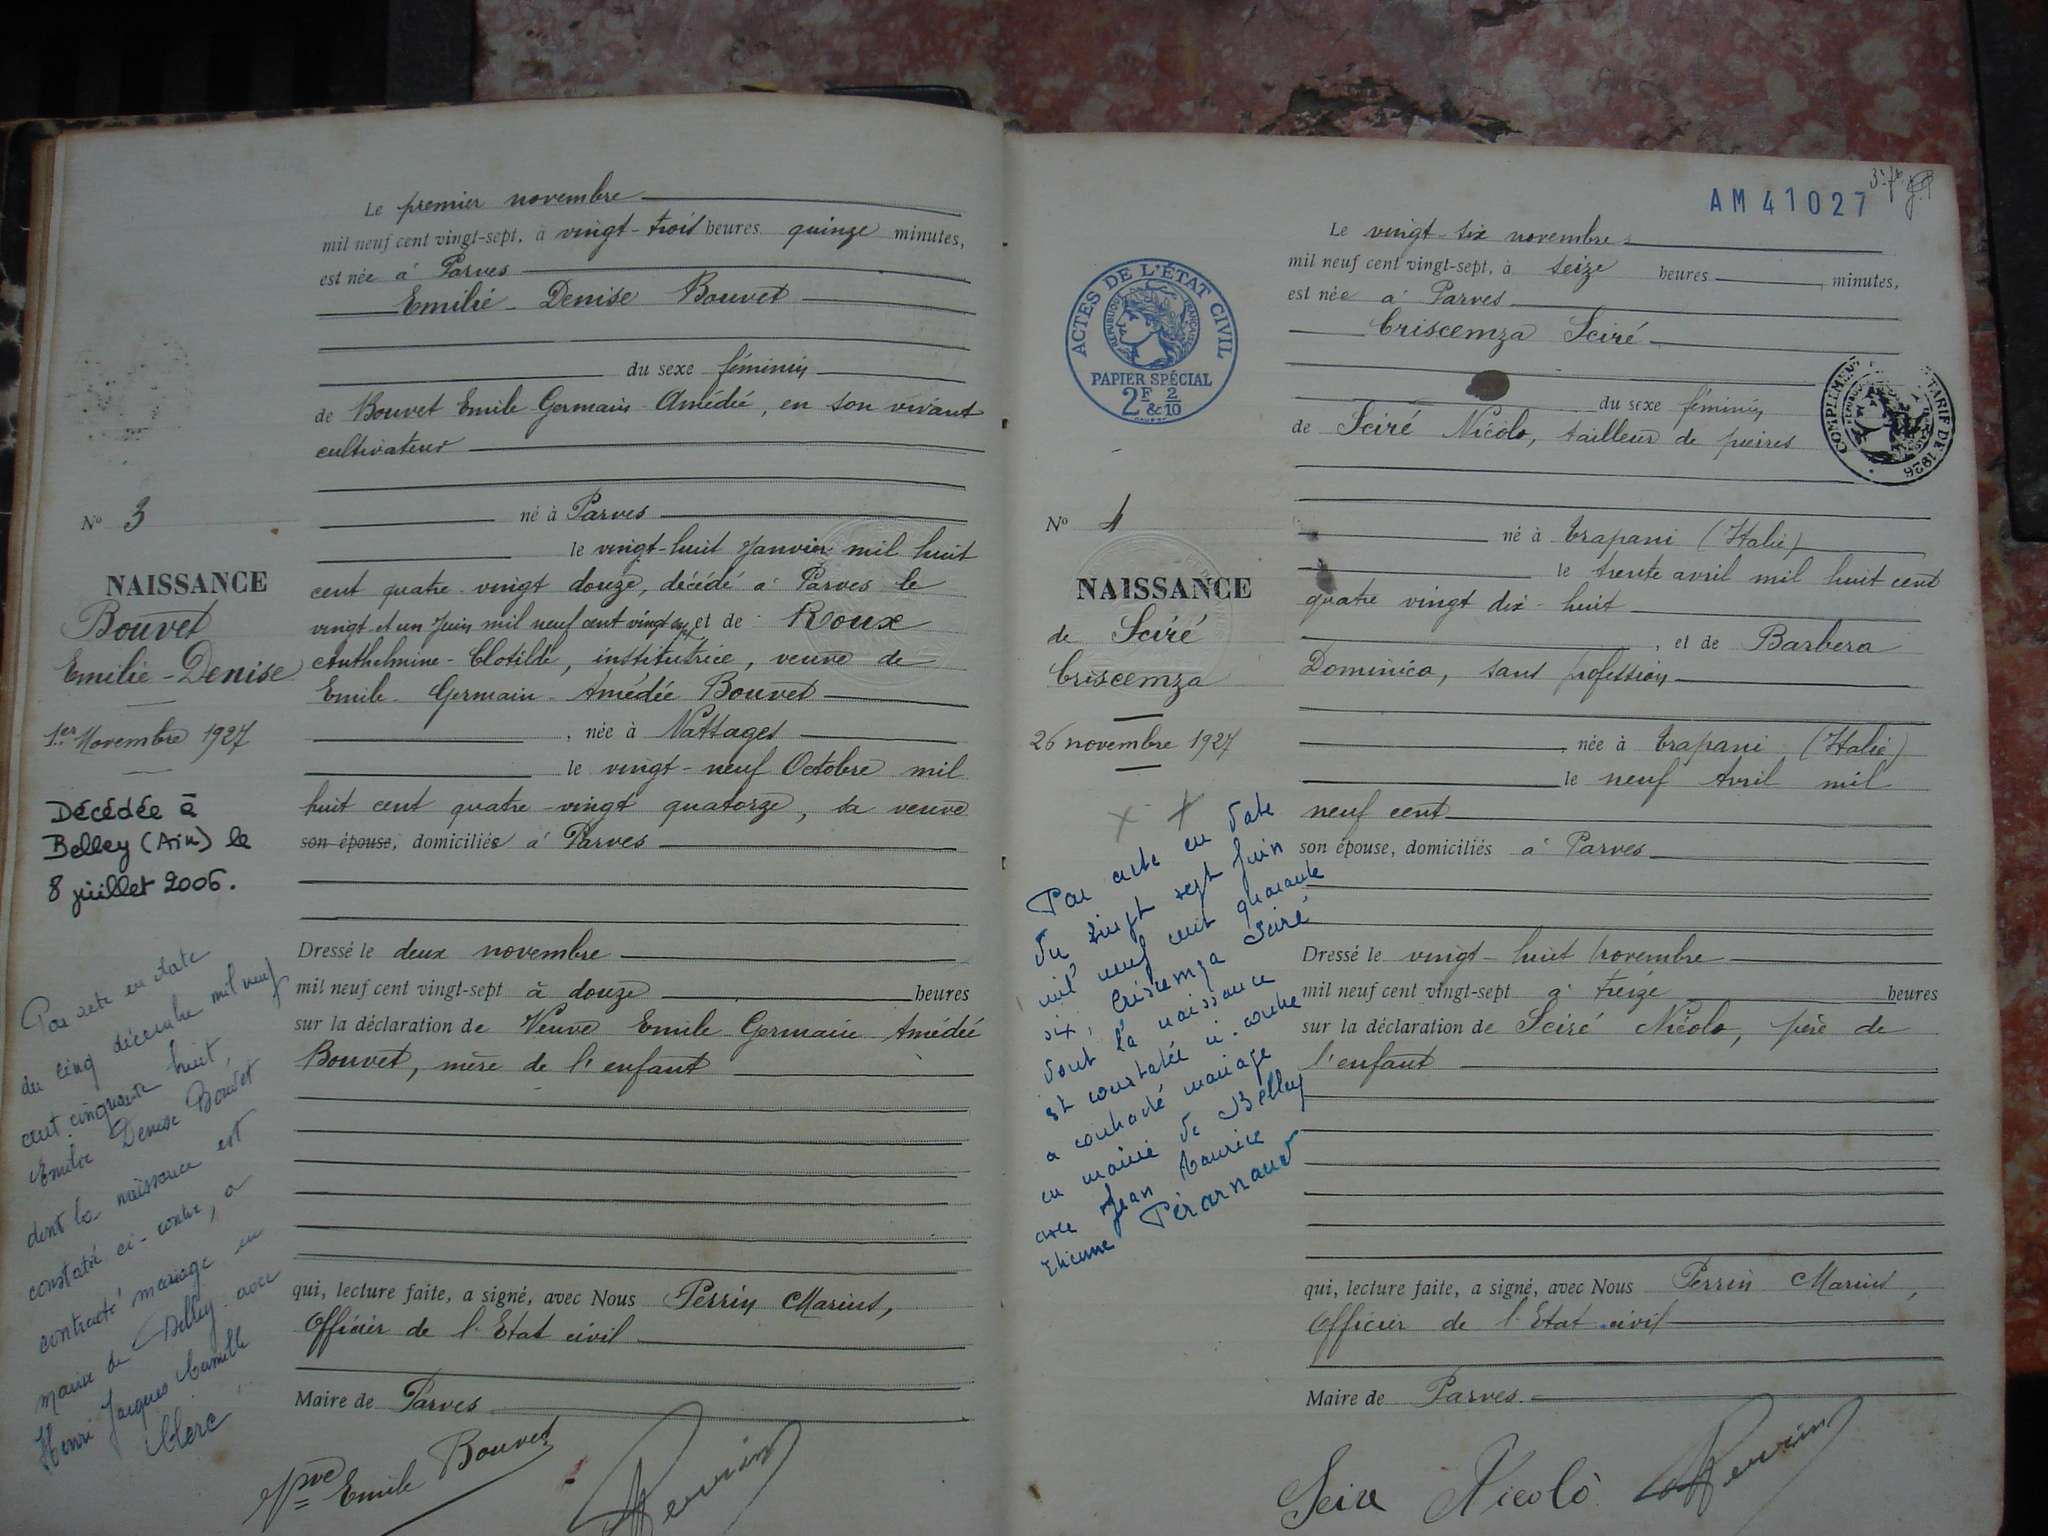 Le premier novembre
mil neuf cent vingt-sept, à vingt-trois heures quinze minutes,
est née à Parves
Emilie-Denise Bouvet
du sexe féminin
de Bouvet Emile Germain Amédée, en son vivant
cultivateur
né à Parves
le vingt-huit Janvier mil huit
cent quatre vingt douze, décédé à Parves le
vingt et un Juin mil neuf cent vingt sept et de Roux
Anthelmine-Clotilde, institutrice, veuve de
Emile Germain Amédée Bouvet
, née à Nattages
le vingt-neuf Octobre mil
huit cent quatre-vingt quatorze, sa veuve
son épouse, domiciliée à Parves
Dressé le deux novembre
mil neuf cent vingt-sept à douze heures
sur la déclaration de Veuve Emile Germain Amédée
Bouvet, mère de l'enfant
qui, lecture faite, a signé, avec Nous Perrin Marius,
Officier de l'Etat civil
Maire de Parves
Vve Emile Bouvet
Perrin
No 3
NAISSANCE
Bouvet
Emilie-Denise
1er Novembre 1927
Décédée à
Belley (Ain) le
8 juillet 2006.
Par acte en date
du cinq décembre mil neuf
cent cinquante huit,
Emilie Denise Bouvet
dont la naissance est
constatée ci-contre, a
contracté mariage en
mairie de Belley avec
Henri Jacques Camille
Clerc
AM 41027
ACTES DE L'ÉTAT CIVIL
RÉPUBLIQUE FRANÇAISE
PAPIER SPÉCIAL
2F & 2/10
COMPLÉMENT TARIF DE 1926
No 4
NAISSANCE
de Sciré
Criscemza
26 novembre 1927
Par acte en date
du vingt sept Juin
mil neuf cent quarante
six, Criscemza Sciré
dont la naissance
est constatée ci-contre
a contracté mariage
en mairie de Belley
avec Jean Maurice
Etienne Pérarnaud
Le vingt-six novembre
mil neuf cent vingt-sept, à seize heures minutes,
est née à Parves
Criscemza Sciré
du sexe féminin
de Sciré Nicolo, tailleur de pierres
né à Trapani (Italie)
le trente avril mil huit cent
quatre vingt dix-huit
, et de Barbera
Dominica, sans profession
, née à Trapani (Italie)
le neuf Avril mil
neuf cent
son épouse, domiciliés à Parves
Dressé le vingt-huit novembre
mil neuf cent vingt-sept à treize heures
sur la déclaration de Sciré Nicolo, père de
l'enfant
qui, lecture faite, a signé, avec Nous Perrin Marius,
Officier de l'Etat civil
Maire de Parves
Scire Nicolò
Perrin